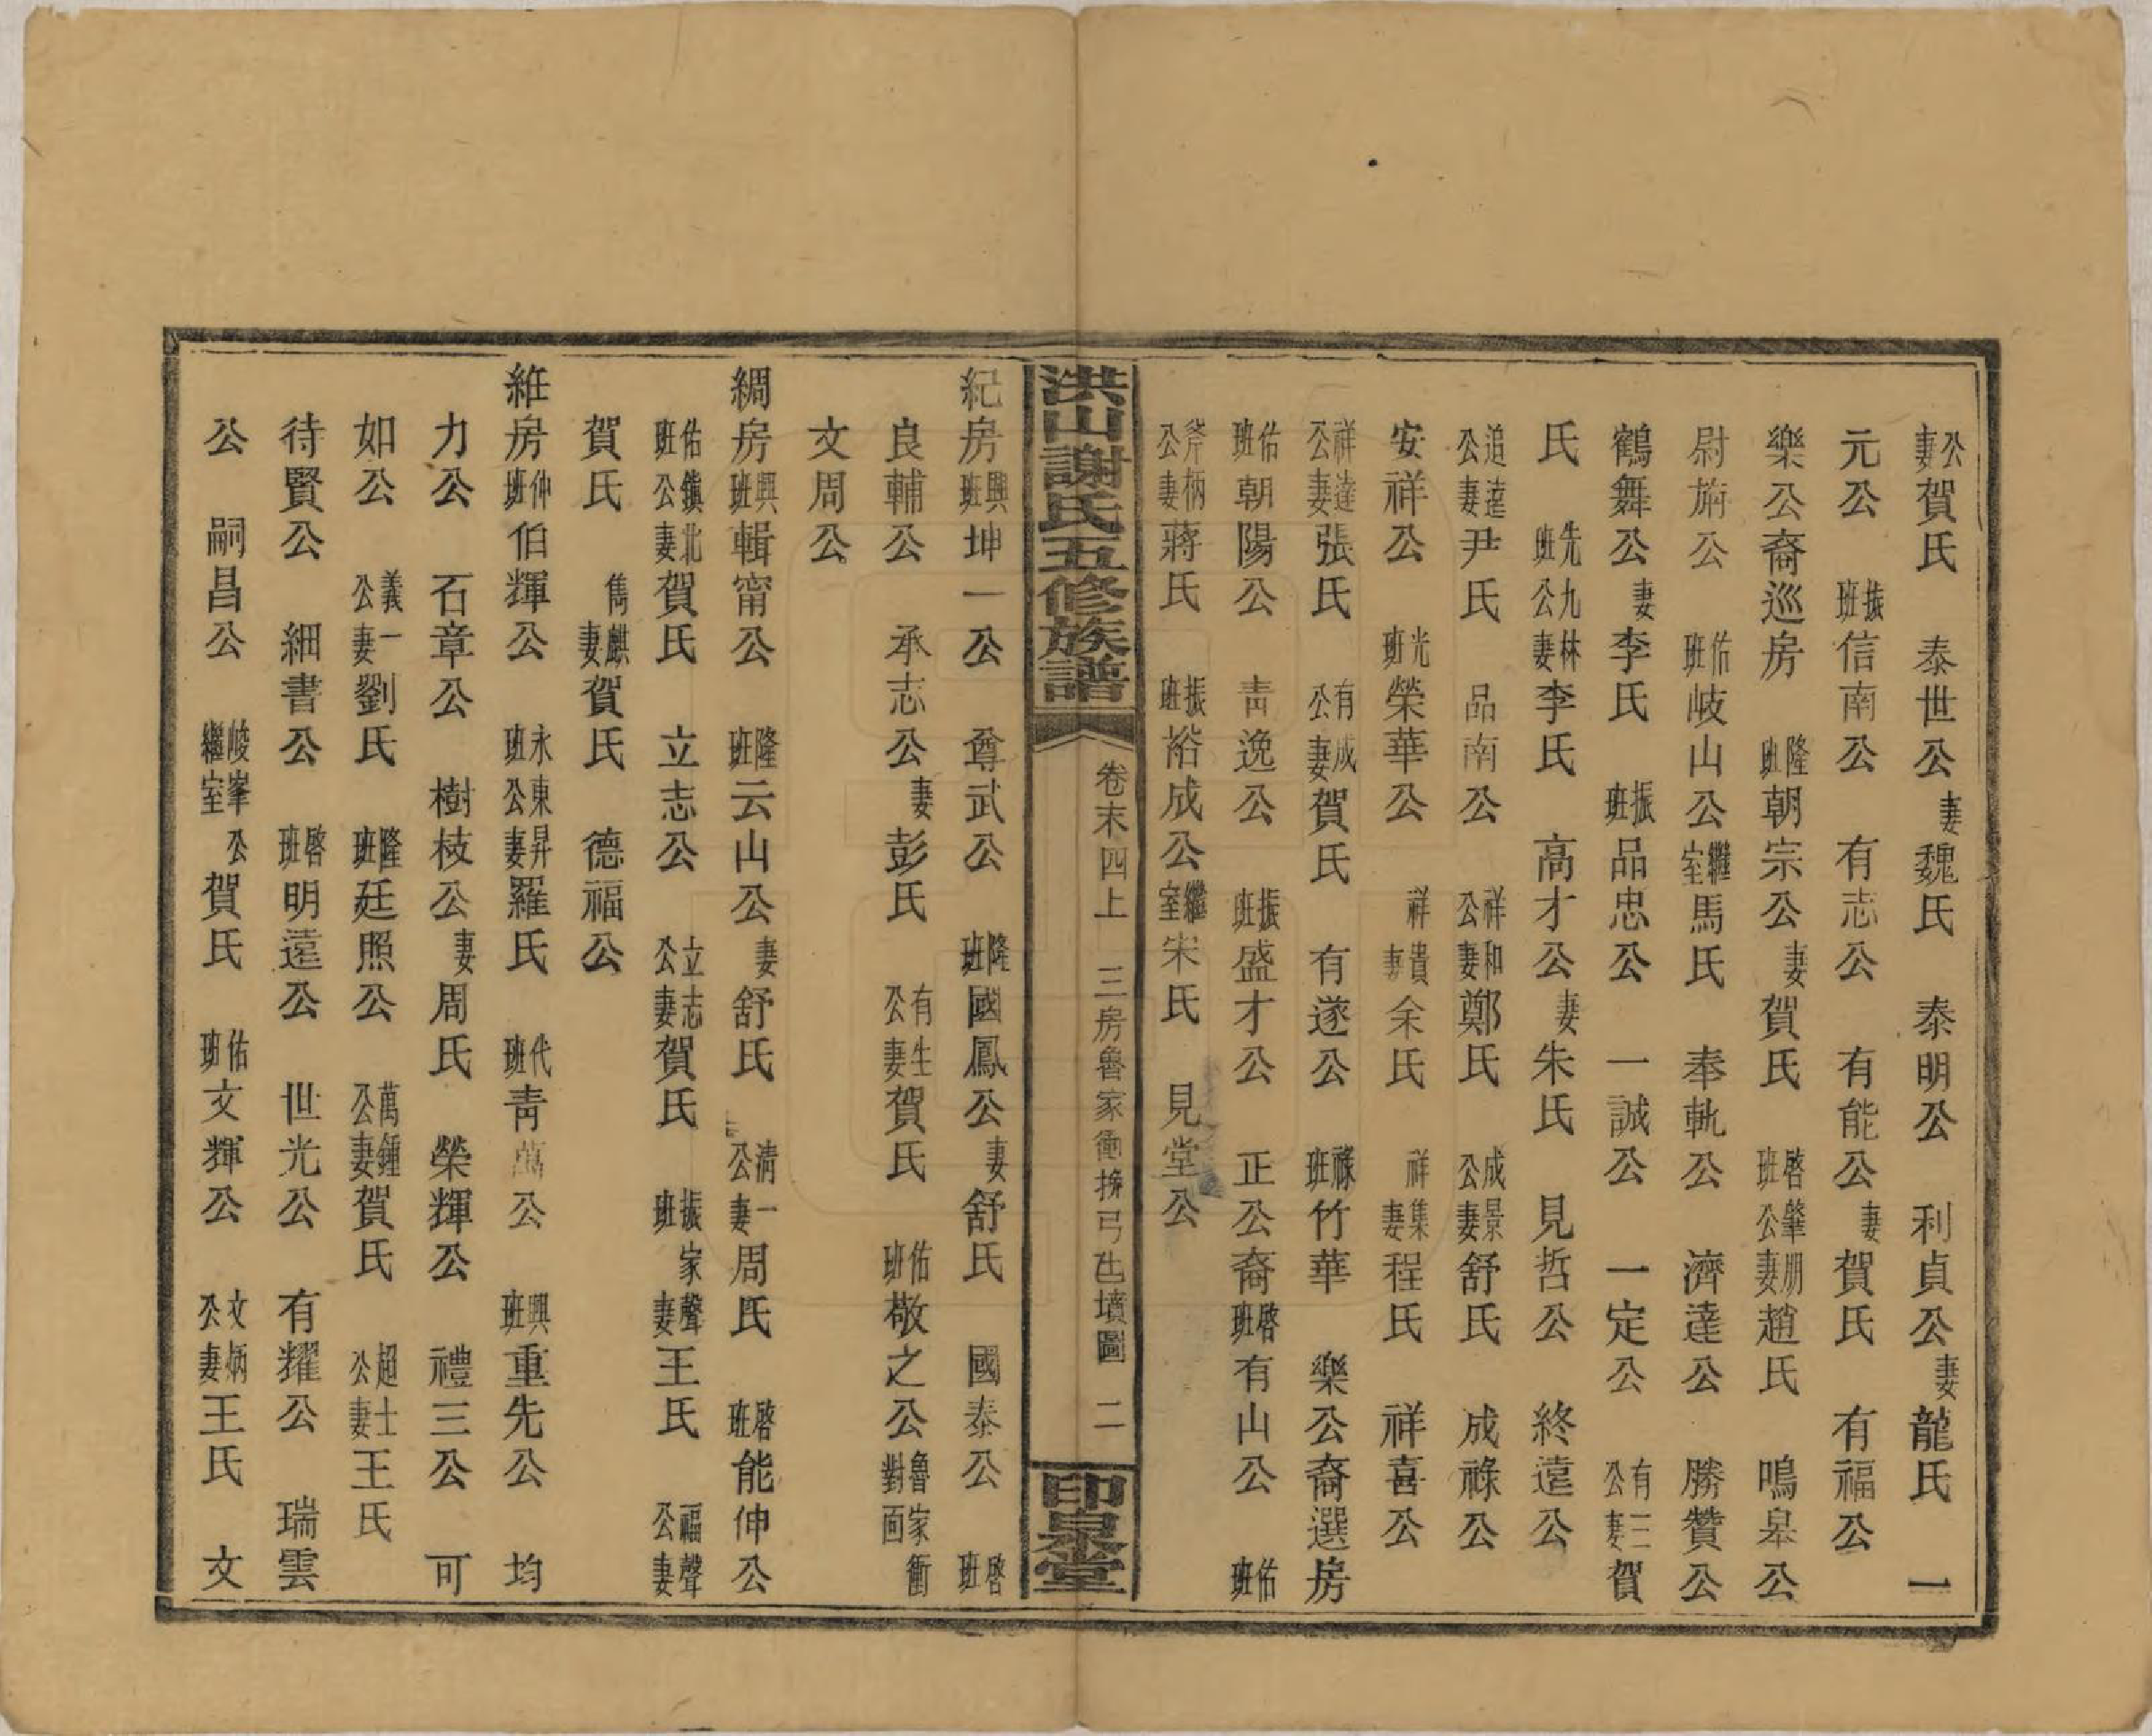 公妻賀氏　泰世公妻魏氏　泰明公　利貞公妻龍氏　一
元公　振班信南公　有志公　有能公妻賀氏　有福公
樂公裔巡房　隆班朝宗公妻賀氏　啓班肇朋公妻趙氏　鳴皋公
尉旂公　佑班岐山公繼室馬氏　奉軌公　濟達公　勝贊公
鶴舞公妻李氏　振班品忠公　一誠公　一定公　有三公妻賀
氏　先班九林公妻李氏　高才公妻朱氏　見哲公　終遠公
追達公妻尹氏　品南公　祥和公妻鄭氏　成景公妻舒氏　成祿公
安祥公　光班榮華公　祥貴妻余氏　祥集妻程氏　祥喜公
祥達公妻張氏　有成公妻賀氏　有遂公　祿班竹華　樂公裔選房
佑班朝陽公　靑逸公　振班盛才公　正公裔啓班有山公　佑班
斧柄公妻蔣氏　振班裕成公繼室宋氏　見堂公
洪山謝氏五修族譜　卷末四上　三房魯家衝弓墳圖　二　印泉堂
紀房興班坤一公　尊武公　隆班國鳳公妻舒氏　國泰公　啓班
良輔公　承志公妻彭氏　有生公妻賀氏　佑班敬之公魯家衝對面
文周公
綢房興班輯甯公　隆班云山公妻舒氏　淸一公妻周氏　啓班能伸公
佑班鎮北公妻賀氏　立志公　立志公妻賀氏　振班家聲妻王氏　福聲公妻
賀氏　雋麒妻賀氏　德福公
維房仲班伯輝公　永班東昇公妻羅氏　代班靑萬公　興班重先公　均
力公　石章公　樹枝公妻周氏　榮輝公　禮三公　可
如公　義一公妻劉氏　隆班廷照公　萬鍾公妻賀氏　超士公妻王氏
待賢公　細書公　啓班明遠公　世光公　有耀公　瑞雲
公　嗣昌公　岐峯公繼室賀氏　佑班文輝公　文炳公妻王氏　文